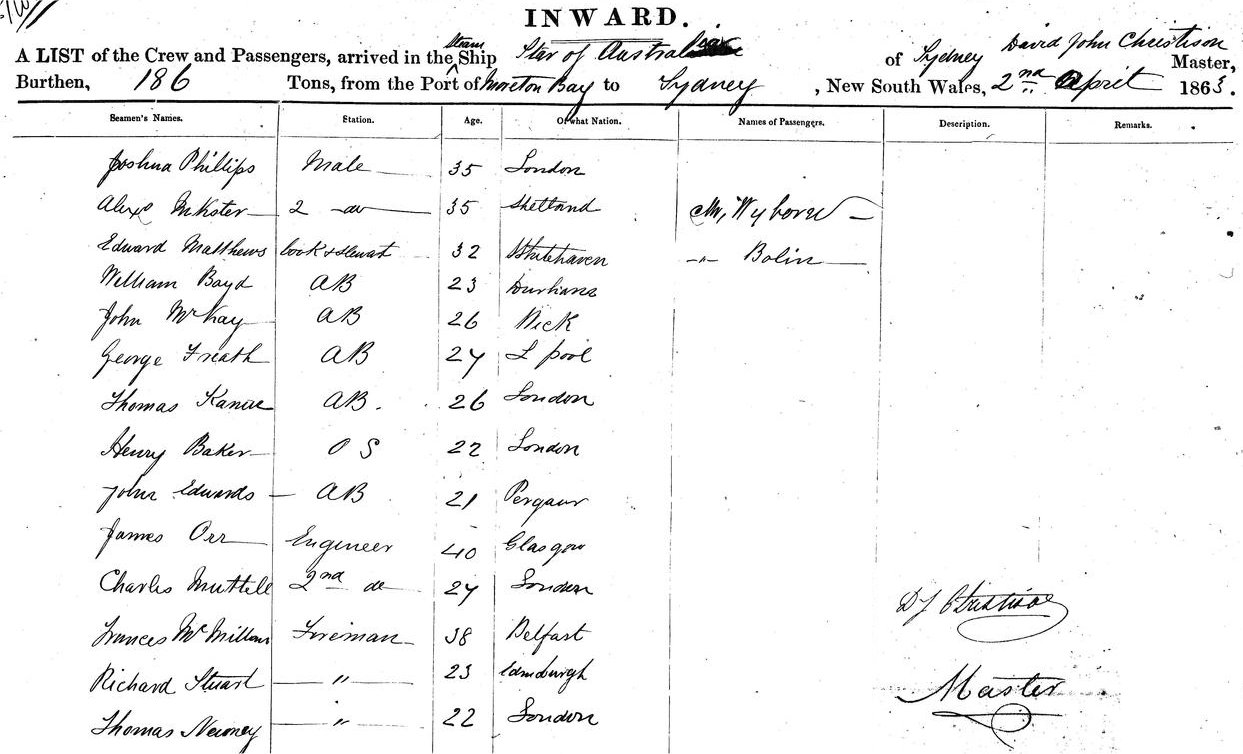 INWARD.
A LIST of the Crew and Passengers, arrived in the Steam Ship Star of Australia of Sydney David John Christison Master,
Burthen, 186 Tons, from the Port of Moreton Bay to Sydney, New South Wales, 2nd April 1863.
Seamen's Names. Station. Age. Of what Nation. Names of Passengers. Description. Remarks.
Joshua Phillips Mate 35 London
Alexr Inkster 2 do 35 Shetland Mr Wyborn
Edward Matthews Cook & Stewat 32 Whitehaven -"- Bolin
William Boyd AB 23 Durham
John McKay AB 26 Wick
George Freath AB 27 L pool
Thomas AB. 26 London
Henry Baker OS 22 London
John Edwards AB 21
James Orr Engineer 40 Glasgow
Charles Muttell 2nd do 27 London
Frances McMillan Fireman 38 Belfast
Richard Stuart " 23 Edinburgh
Thomas " 22 London
DJ Christison
Master